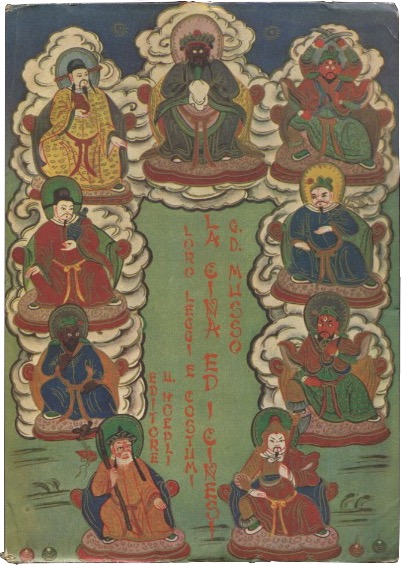 G. D. MUSSO
LA CINA ED I CINESI
LORO LEGGI E COSTUMI
U. HOEPLI
EDITORE